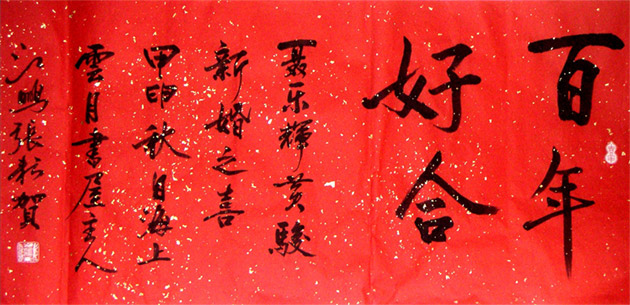 百年
好合
聂乐辉黄駿
新婚之喜
甲申秋月海上
雲月書屋主人
江鸣張松賀